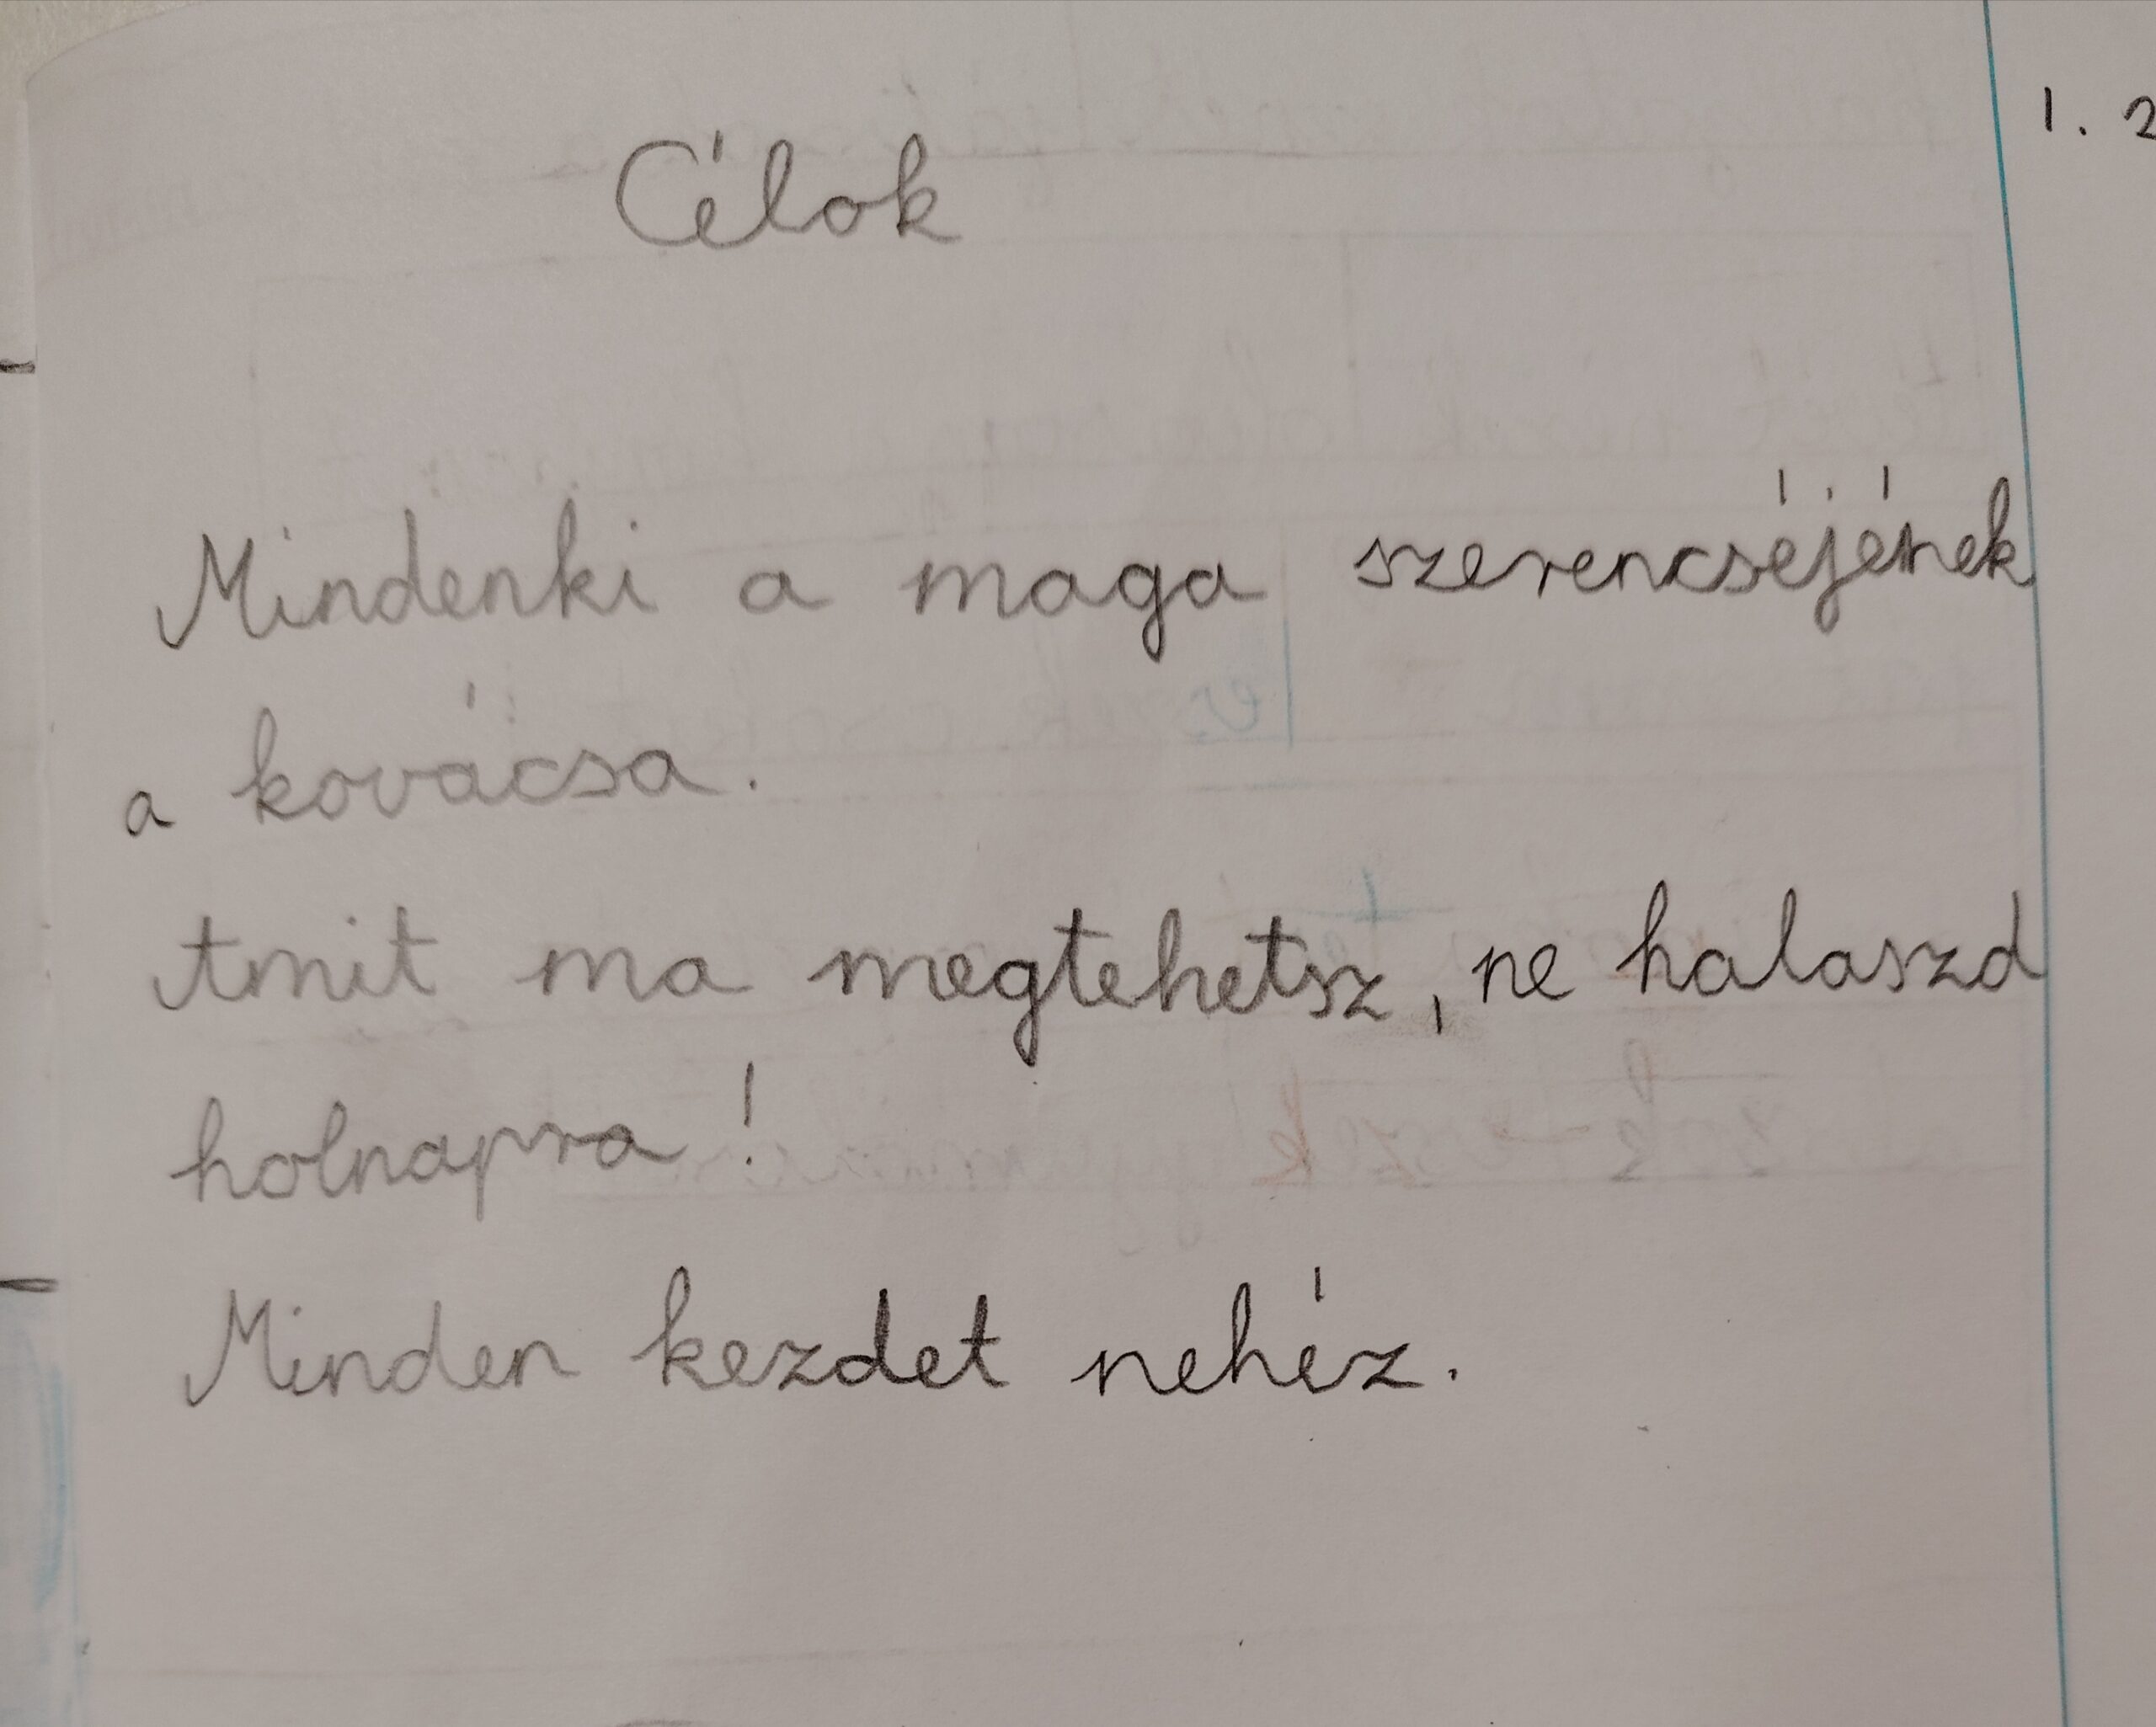 Célok
1. 2
Mindenki a maga szerencséjének
a kovácsa.
Amit ma megtehetsz, ne halaszd
holnapra!
Minden kezdet nehéz.